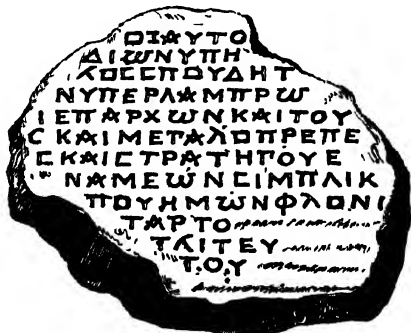 ΟΙΑΥΤΟ
ΔΙωΝΥΠΗ
ΛΟCCΠΟΥΔΗΤ
ΝΥΠΕΡΛΑΜΠΡω
ΙΕΠΑΡΧωΝΚΑΙΤΟΥ
CΚΑΙΜΕΤΑΛΟΠΡΕΠΕ
CΚΑΙCΤΡΑΤΗΓΟΥΕ
ΝΑΜΕωΝCΙΜΠΛΙΚ
ΠΟΥΗΜωΝΦΛΟΝΙ
ΤΑΡΤΟ
ΤΛΙΤΕΥ
Τ.Ο.Υ